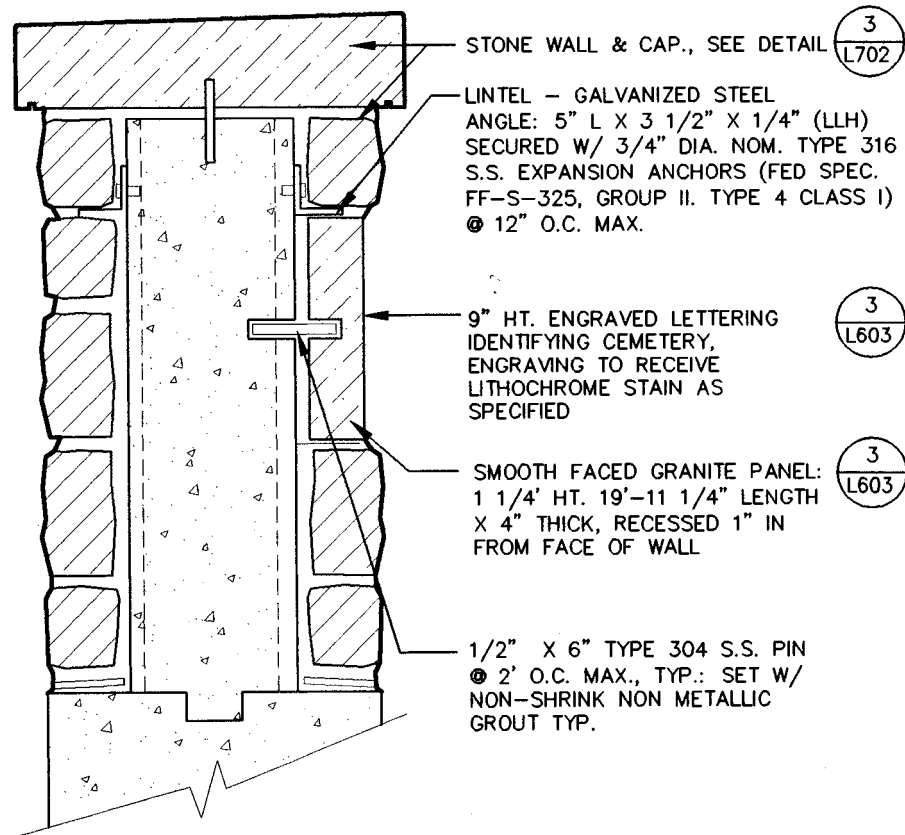 STONE WALL & CAP., SEE DETAIL
3
L702
LINTEL – GALVANIZED STEEL
ANGLE: 5" L X 3 1/2" X 1/4" (LLH)
SECURED W/ 3/4" DIA. NOM. TYPE 316
S.S. EXPANSION ANCHORS (FED SPEC.
FF-S-325, GROUP II. TYPE 4 CLASS I)
@ 12" O.C. MAX.
9" HT. ENGRAVED LETTERING
IDENTIFYING CEMETERY,
ENGRAVING TO RECEIVE
LITHOCHROME STAIN AS
SPECIFIED
3
L603
SMOOTH FACED GRANITE PANEL:
1 1/4' HT. 19'-11 1/4" LENGTH
X 4" THICK, RECESSED 1" IN
FROM FACE OF WALL
3
L603
1/2" X 6" TYPE 304 S.S. PIN
@ 2' O.C. MAX., TYP.: SET W/
NON-SHRINK NON METALLIC
GROUT TYP.